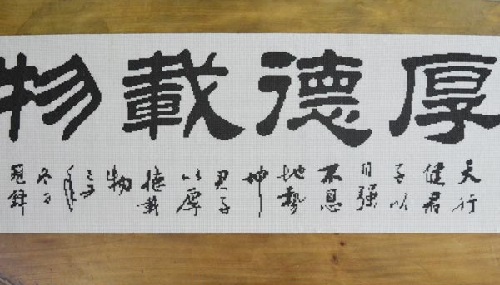 厚德載物
天行
健君
子以
自强
不息
地勢
坤
君子
以厚
德載
物
年
冬月